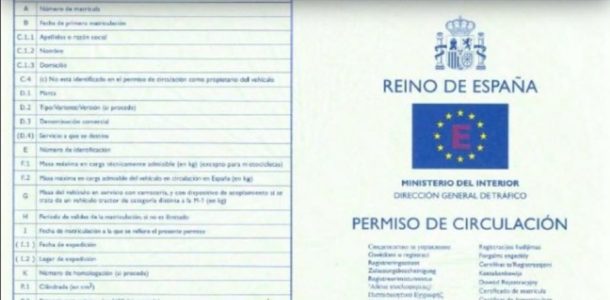 A Número de matrícula
B Fecha de primera matriculación
C.1.1 Apellidos o razón social
C.1.2 Nombre
C.1.3 Domicilio
C.4 (c) No está identificado en el permiso de circulación como propietario del vehículo
D.1 Marca
D.2 Tipo/Variante/Versión (si procede)
D.3 Denominación comercial
(D.4) Servicio a que se destina
E Número de identificación
F.1 Masa máxima en carga técnicamente admisible (en kg) (excepto para motocicletas)
F.2 Masa máxima en carga admisible del vehículo en circulación en España (en kg)
G Masa del vehículo en servicio con carrocería, y con dispositivo de acoplamiento si se
trata de un vehículo tractor de categoría distinta a la M-1 (en kg)
H Periodo de validez de la matriculación, si no es ilimitado
I Fecha de matriculación a la que se refiere el presente permiso
(I.1) Fecha de expedición
(I.2) Lugar de expedición
K Número de homologación (si procede)
P.1 Cilindrada (en cm³)
REINO DE ESPAÑA
E
MINISTERIO DEL INTERIOR
DIRECCIÓN GENERAL DE TRÁFICO
PERMISO DE CIRCULACIÓN
Certificado de matrícula